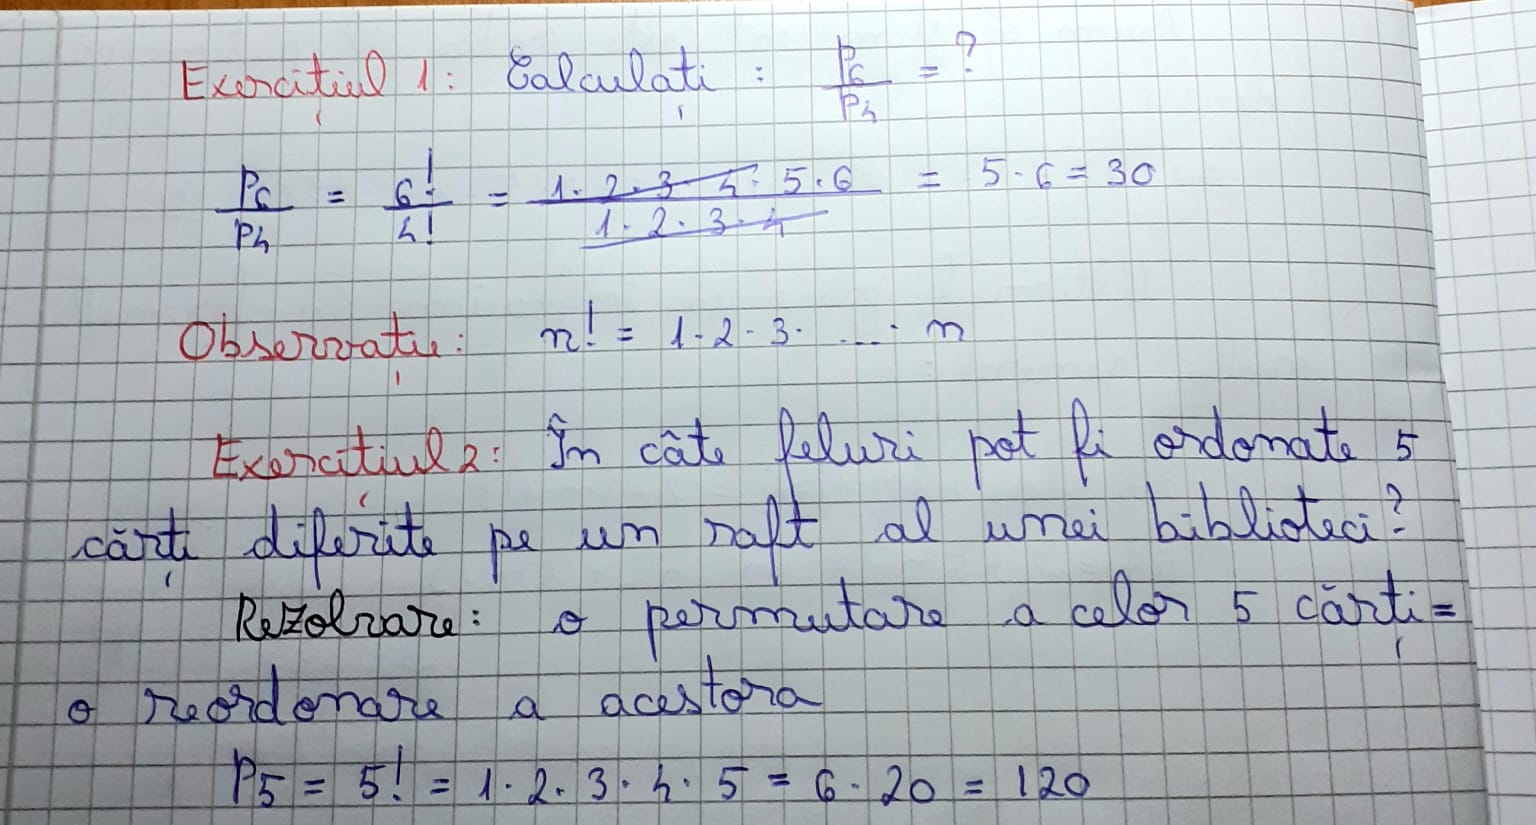 Exercițiul 1: Calculați: P6/P4 = ?
P6/P4 = 6!/4! = 1·2·3·4·5·6/1·2·3·4 = 5·6 = 30
Observație: n! = 1·2·3·...·n
Exercițiul 2: În câte feluri pot fi ordonate 5
cărți diferite pe un raft al unei biblioteci?
Rezolvare: o permutare a celor 5 cărți =
o reordonare a acestora
P5 = 5! = 1·2·3·4·5 = 6·20 = 120